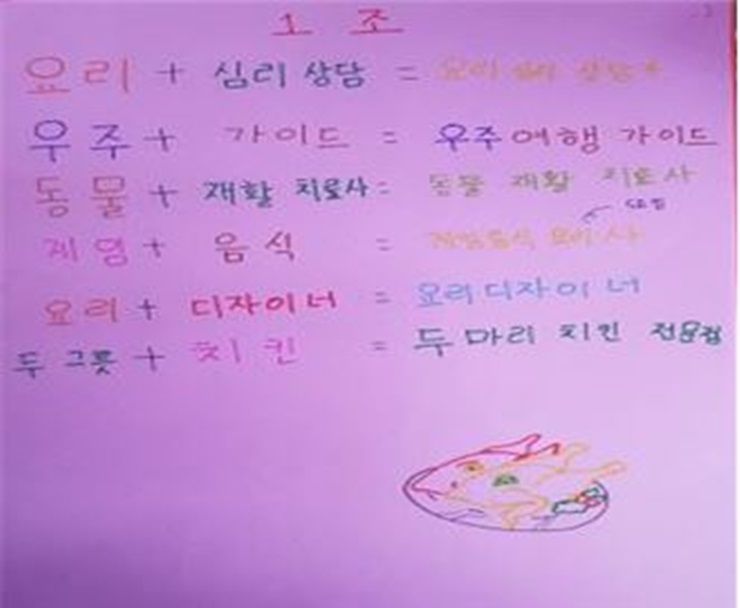 1 조
요리 + 심리 상담 = 요리 심리 상담사
우주 + 가이드 = 우주여행 가이드
동물 + 재활 치료사 = 동물 재활 치료사
체험 + 음식 = 체험음식 요리사
요리 + 디자이너 = 요리디자이너
두 그릇 + 치킨 = 두마리 치킨 전문점